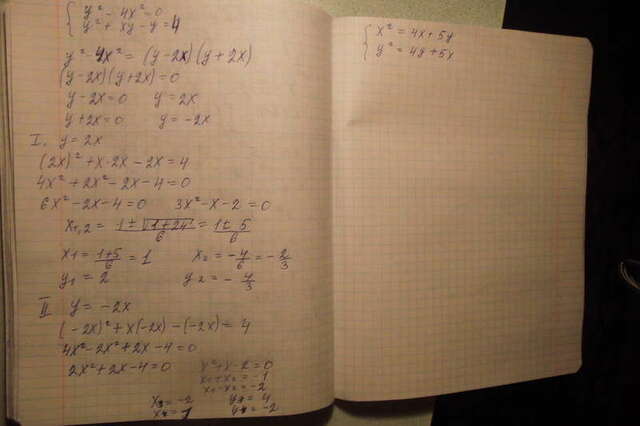 y² - 4x² = 0
y² + xy - y = 4
y² - 4x² = (y - 2x)(y + 2x)
(y - 2x)(y + 2x) = 0
y - 2x = 0 y = 2x
y + 2x = 0 y = -2x
I. y = 2x
(2x)² + x·2x - 2x = 4
4x² + 2x² - 2x - 4 = 0
6x² - 2x - 4 = 0 3x² - x - 2 = 0
x₁,₂ = (1 ± √(1+24))/6 = (1 ± 5)/6
x₁ = (1+5)/6 = 1 x₂ = -4/6 = -2/3
y₁ = 2 y₂ = -4/3
II y = -2x
(-2x)² + x(-2x) - (-2x) = 4
4x² - 2x² + 2x - 4 = 0
2x² + 2x - 4 = 0 x² + x - 2 = 0
x₁ + x₂ = -1
x₁·x₂ = -2
x₃ = -2 y₃ = 4
x₄ = 1 y₄ = -2
x² = 4x + 5y
y² = 4y + 5x